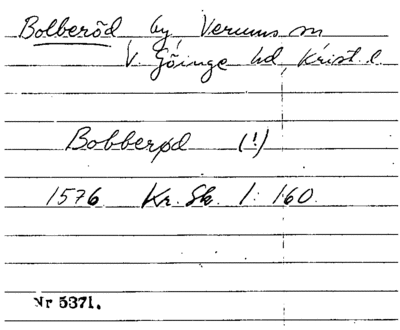 Bolberöd by, Verums sn
V. Göinge hd, Krist. l.
Bobberød (!)
1576 Kr. Sk. 1: 160.
Nr 5371.